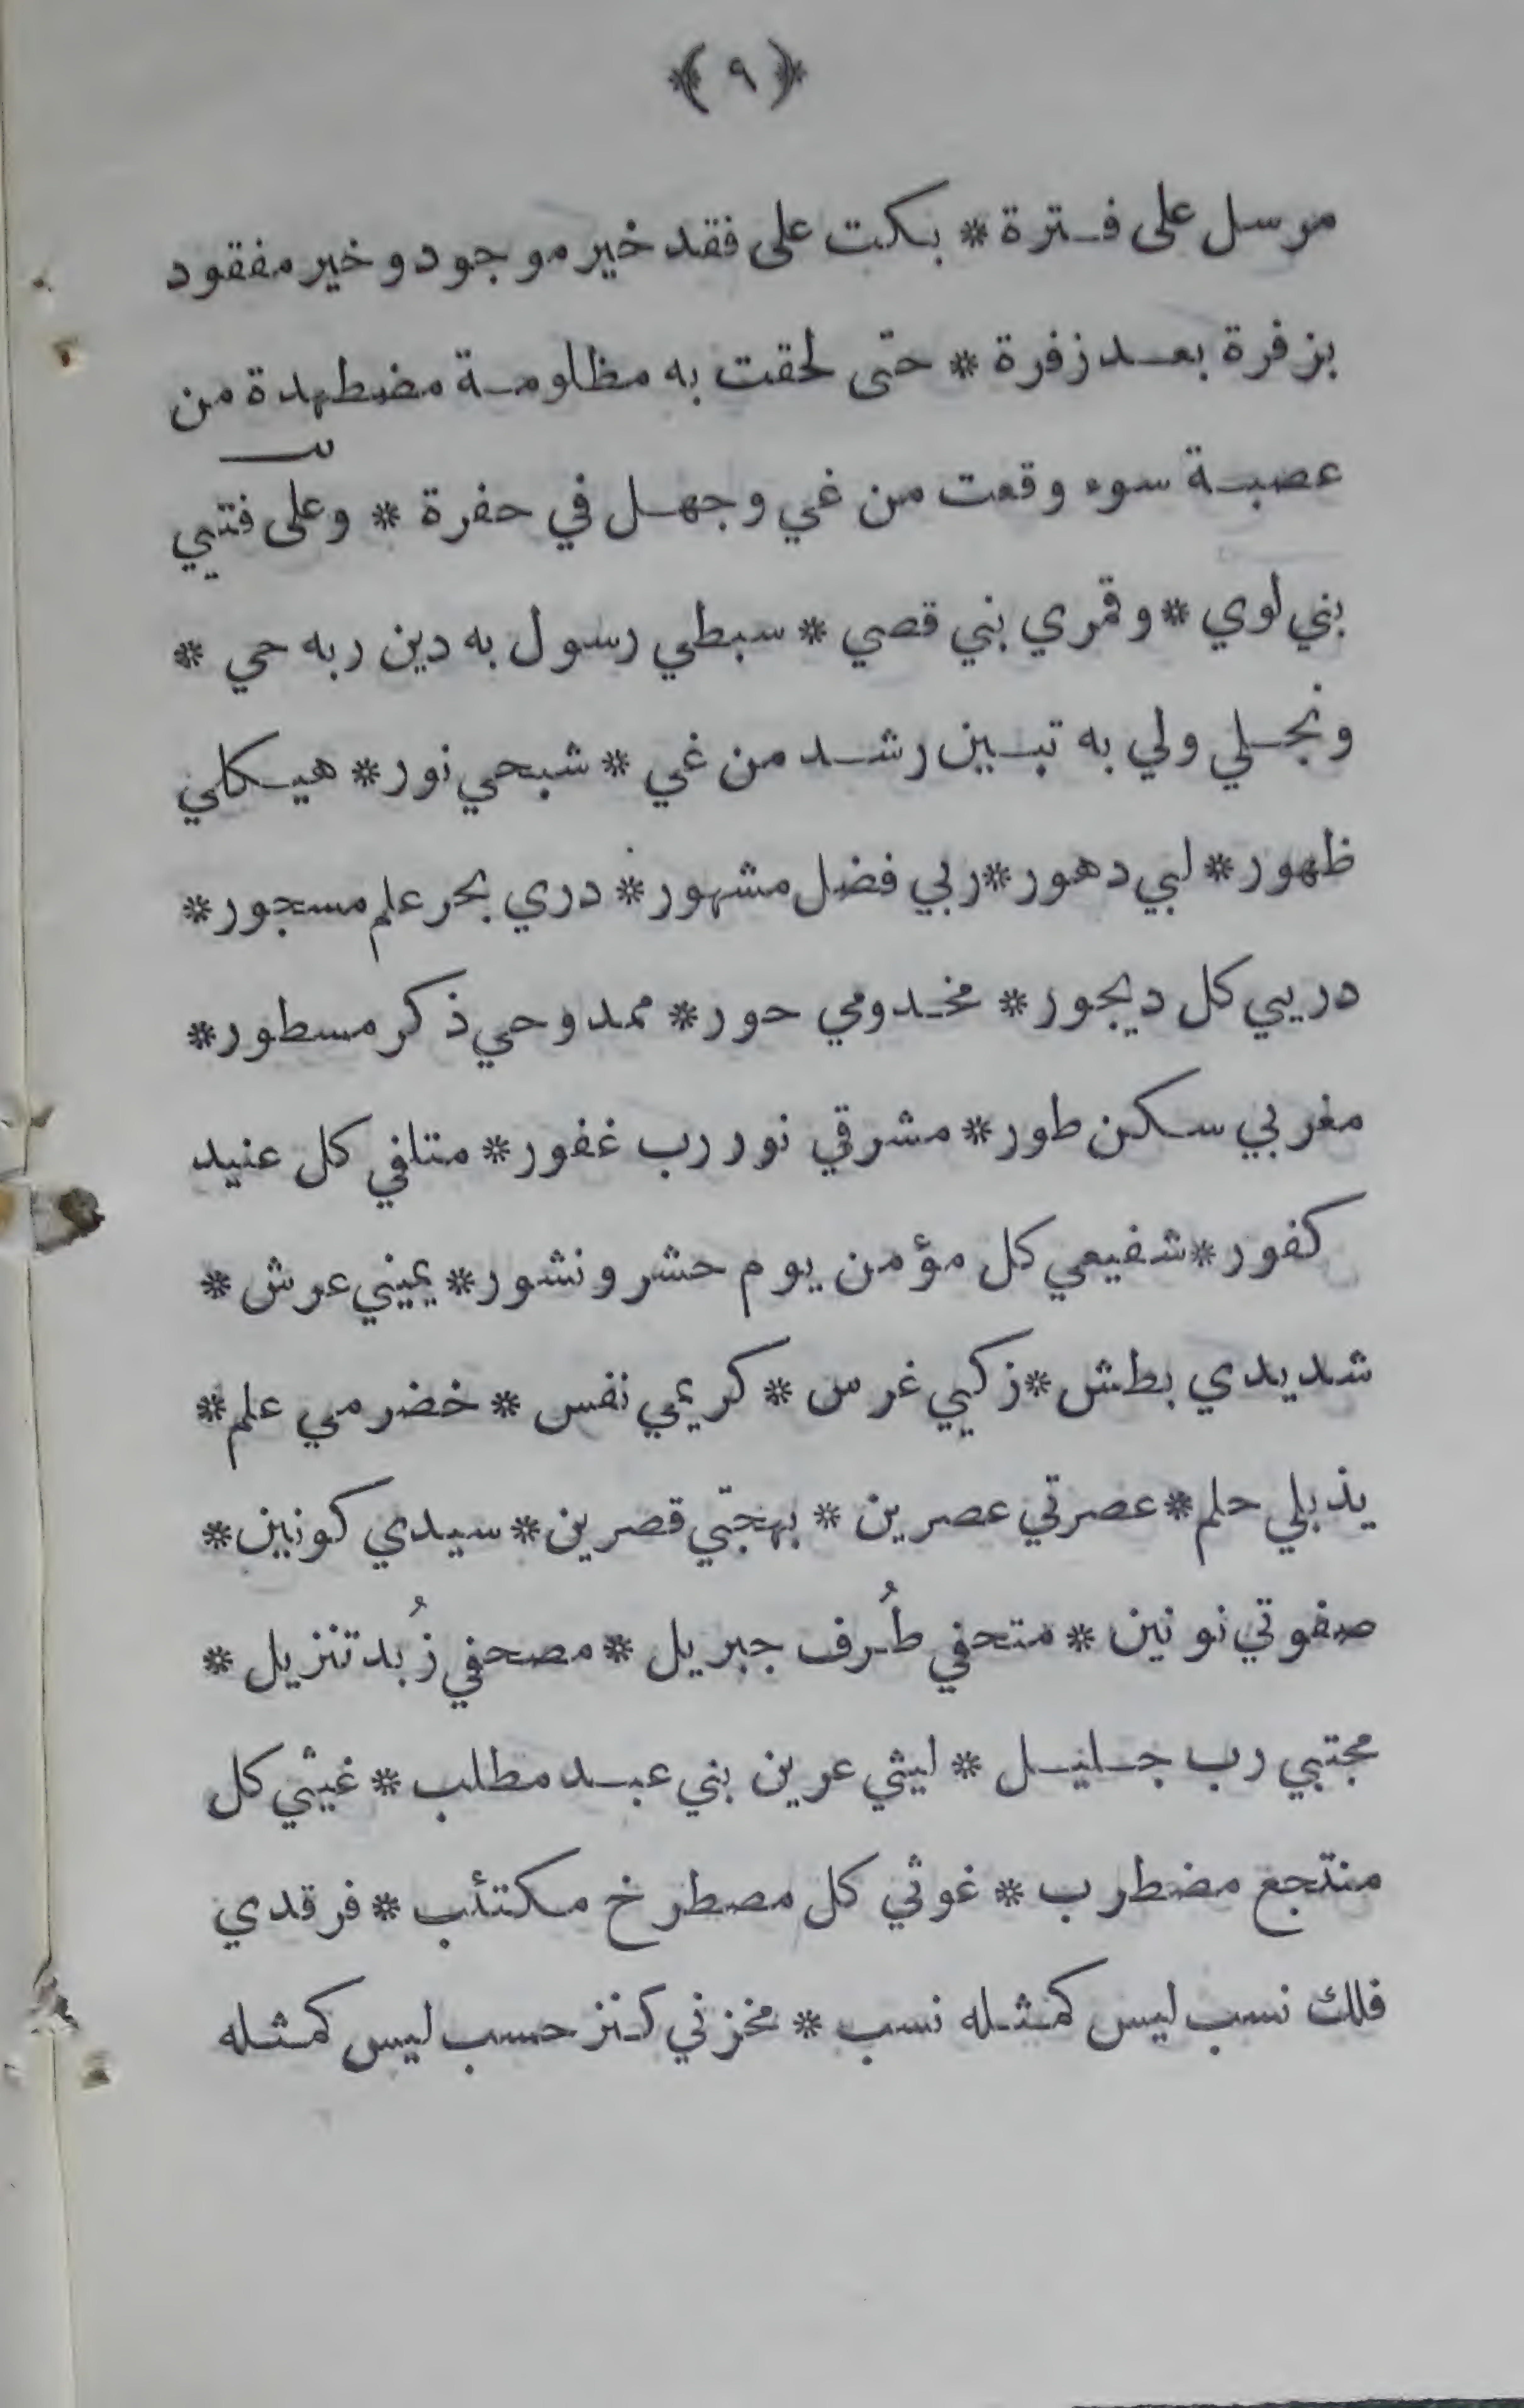 ﴿ ٩ ﴾
مرسل على فترة * بكت على فقد خير موجود و خير مفقود
بزفرة بعد زفرة * حتى لحقت به مظلومة مضطهدة من
عصبة سوء وقعت من غي وجهل في حفرة * وعلى فتيي
بني لوي * وقمري بني قصي * سبطي رسول به دين ربه حي *
ونجلي ولي به تبين رشد من غي * شبحي نور * هيكلي
ظهور * لبي دهور * ربي فضل مشهور * دري بحر علم مسجور *
دريي كل ديجور * مخدومي حور * ممدوحي ذكر مسطور *
مغربي سكن طور * مشرقي نور رب غفور * متلفي كل عنيد
كفور * شفيعي كل مؤمن يوم حشر ونشور * يميني عرش *
شديدي بطش * زكيي غرس * كريمي نفس * خضرمي علم *
يذبلي حلم * عصرتي عصرين * بهجتي قصرين * سيدي كونين *
صفوتي نونين * متحفي طُرف جبريل * مصحفي زُبد تنزيل *
مجتبي رب جليل * ليثي عرين بني عبد مطلب * غيثي كل
منتجع مضطرب * غوثي كل مصطرخ مكتئب * فرقدي
فلك نسب ليس كمثله نسب * مخزني كنز حسب ليس كمثله